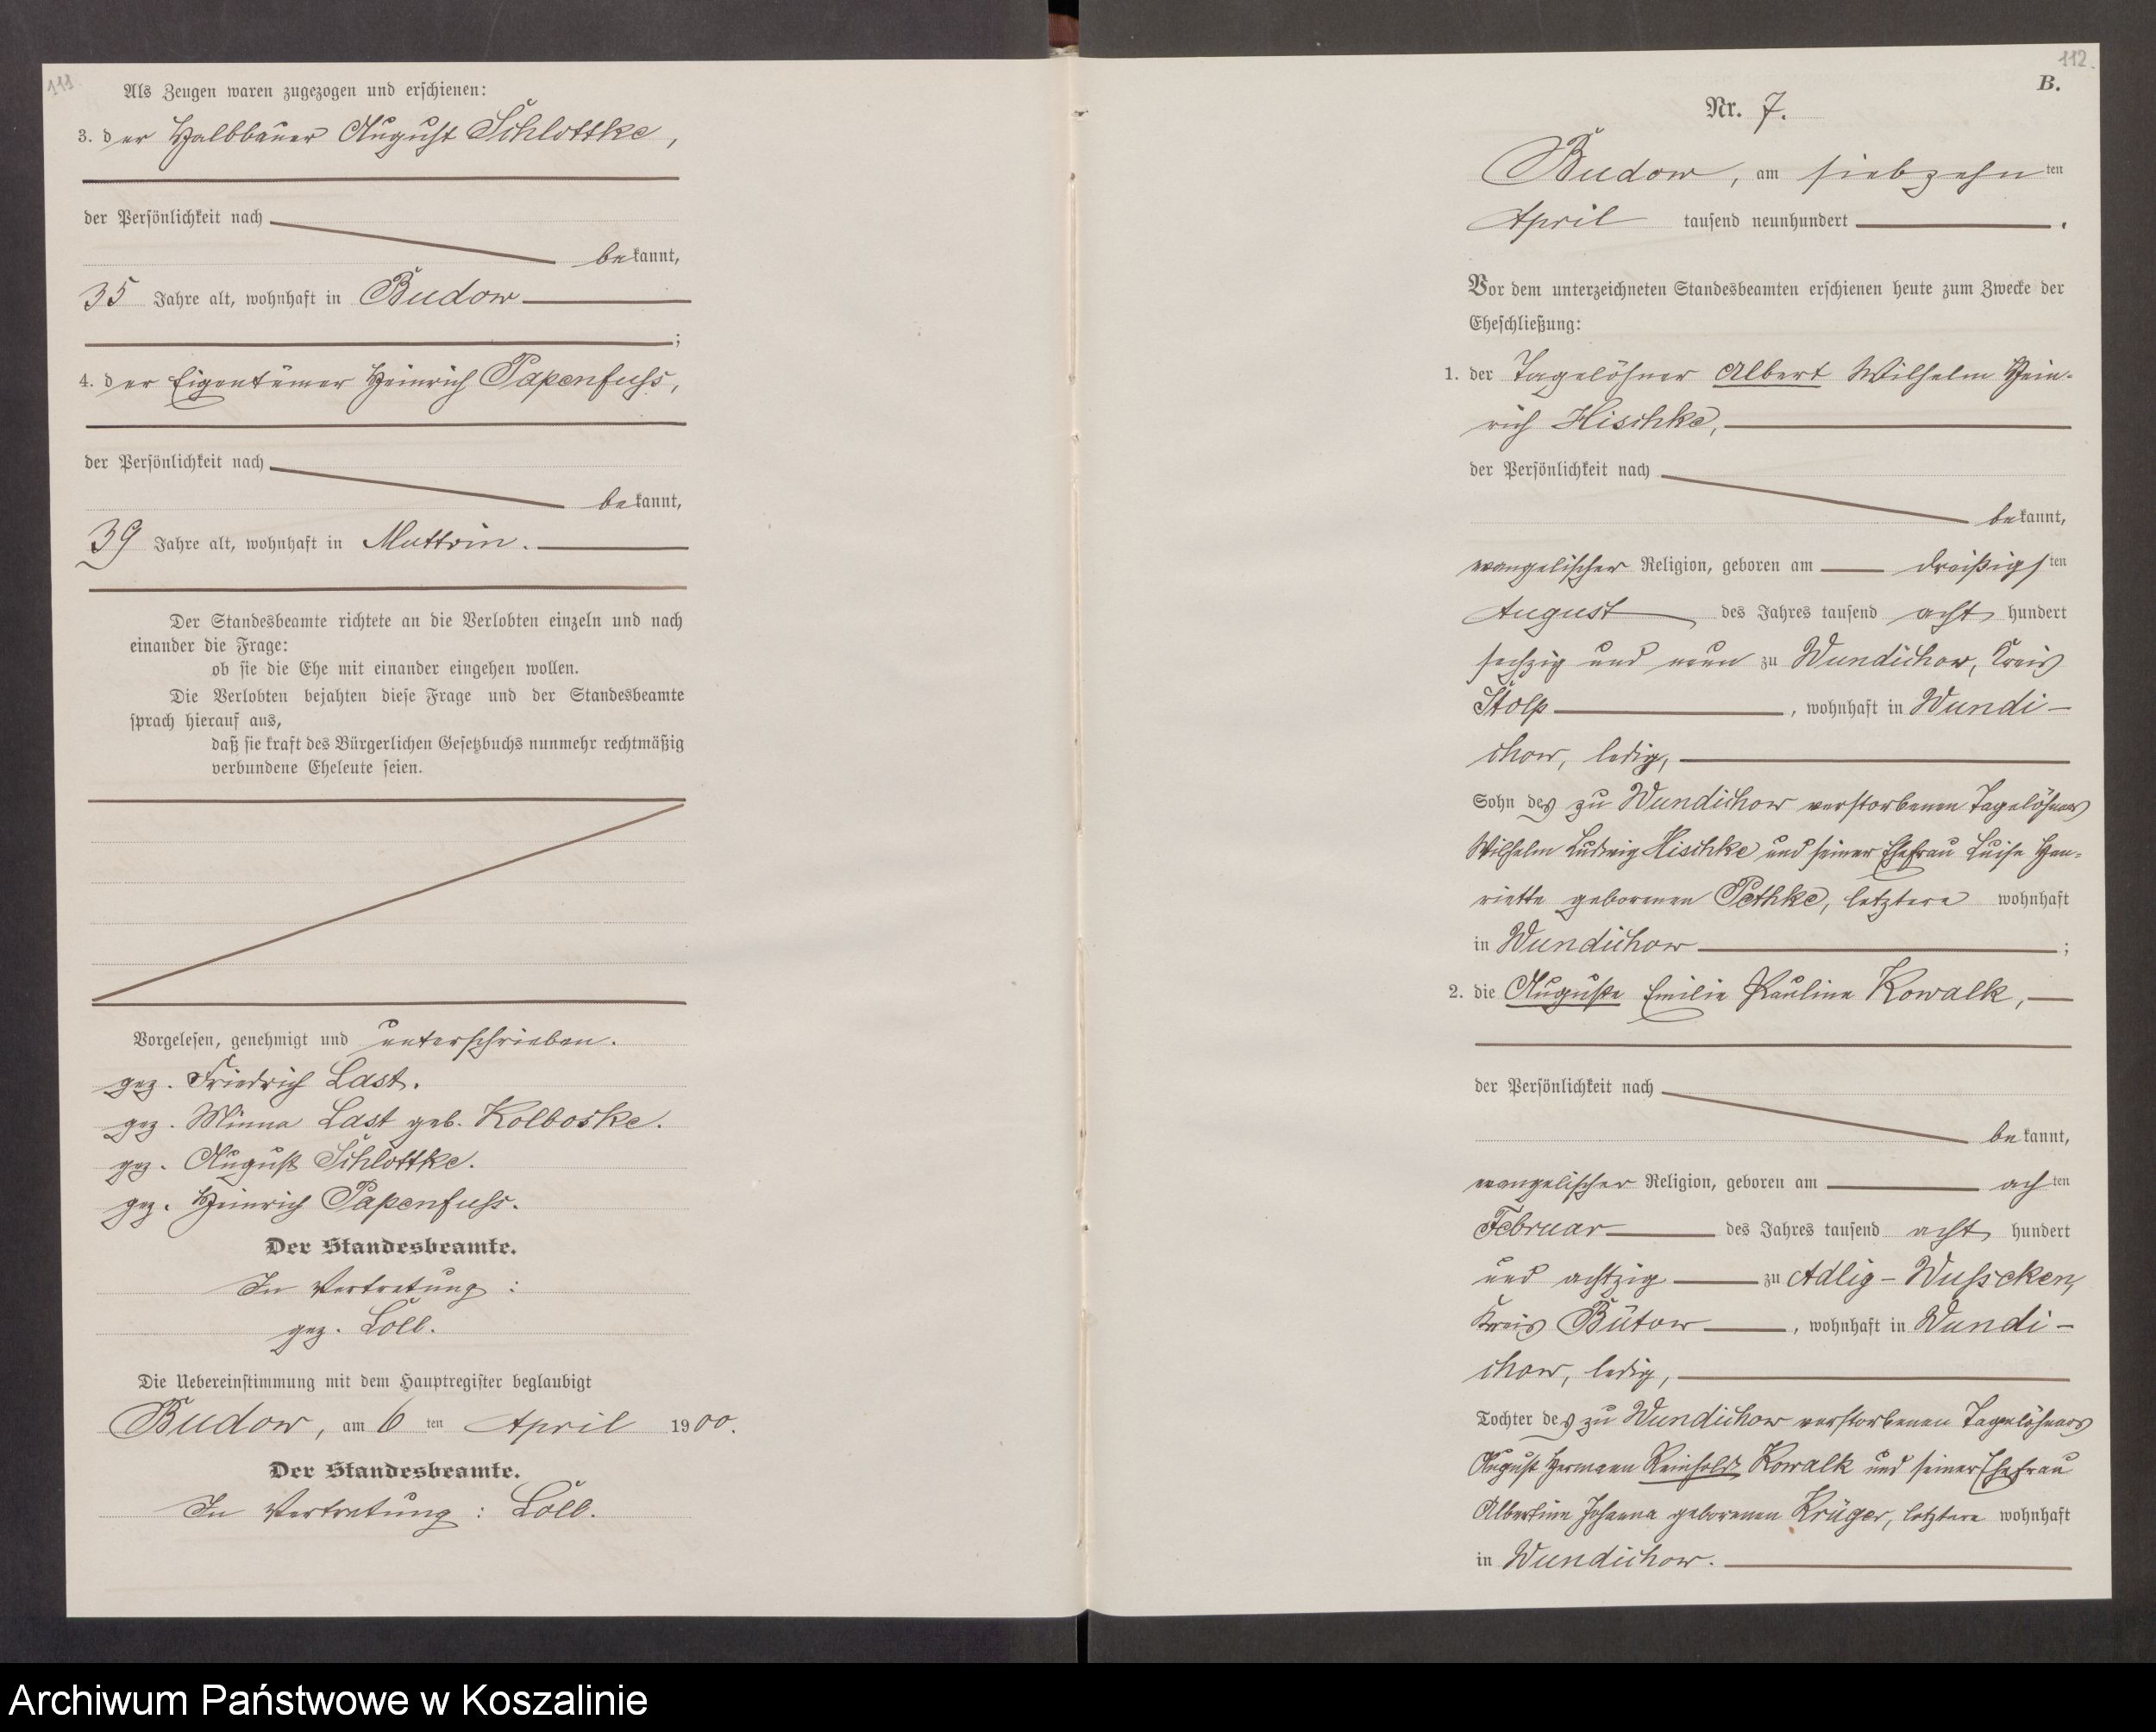 111
Als Zeugen waren zugezogen und erschienen:
3. der Halbbauer August Schlottke,
der Persönlichkeit nach
bekannt,
35 Jahre alt, wohnhaft in Budow
;
4. der Eigentümer Heinrich Papenfuss,
der Persönlichkeit nach
bekannt,
39 Jahre alt, wohnhaft in Muttrin.
Der Standesbeamte richtete an die Verlobten einzeln und nach
einander die Frage:
ob sie die Ehe mit einander eingehen wollen.
Die Verlobten bejahten diese Frage und der Standesbeamte
sprach hierauf aus,
daß sie kraft des Bürgerlichen Gesetzbuchs nunmehr rechtmäßig
verbundene Eheleute seien.
Vorgelesen, genehmigt und unterschrieben.
gez. Friedrich Last.
gez. Minna Last geb. Kolboske.
gez. August Schlottke.
gez. Heinrich Papenfuss.
Der Standesbeamte.
In Vertretung:
gez. Löll.
Die Uebereinstimmung mit dem Hauptregister beglaubigt
Budow, am 6 ten April 1900.
Der Standesbeamte.
In Vertretung: Löll.
112.
B.
Nr. 7.
Budow, am siebzehnten
April tausend neunhundert .
Vor dem unterzeichneten Standesbeamten erschienen heute zum Zwecke der
Eheschließung:
1. der Tagelöhner Albert Wilhelm Hein-
rich Hischke,
der Persönlichkeit nach
bekannt,
evangelischer Religion, geboren am dreißigsten
August des Jahres tausend acht hundert
sechzig und neun zu Wundichow, Kreis
Stolp, wohnhaft in Wundi-
chow, ledig,
Sohn des zu Wundichow verstorbenen Tagelöhners
Wilhelm Ludwig Hischke und seiner Ehefrau Luise Hen-
riette geborenen Pethke, letztere wohnhaft
in Wundichow ;
2. die Auguste Emilie Pauline Kowalk,
der Persönlichkeit nach
bekannt,
evangelischer Religion, geboren am achten
Februar des Jahres tausend acht hundert
und achtzig zu Adlig-Wusseken,
Kreis Bütow, wohnhaft in Wundi-
chow, ledig,
Tochter des zu Wundichow verstorbenen Tagelöhners
August Hermann Reinhold Kowalk und seiner Ehefrau
Albertine Johanna geborenen Krüger, letztere wohnhaft
in Wundichow.
Archiwum Państwowe w Koszalinie